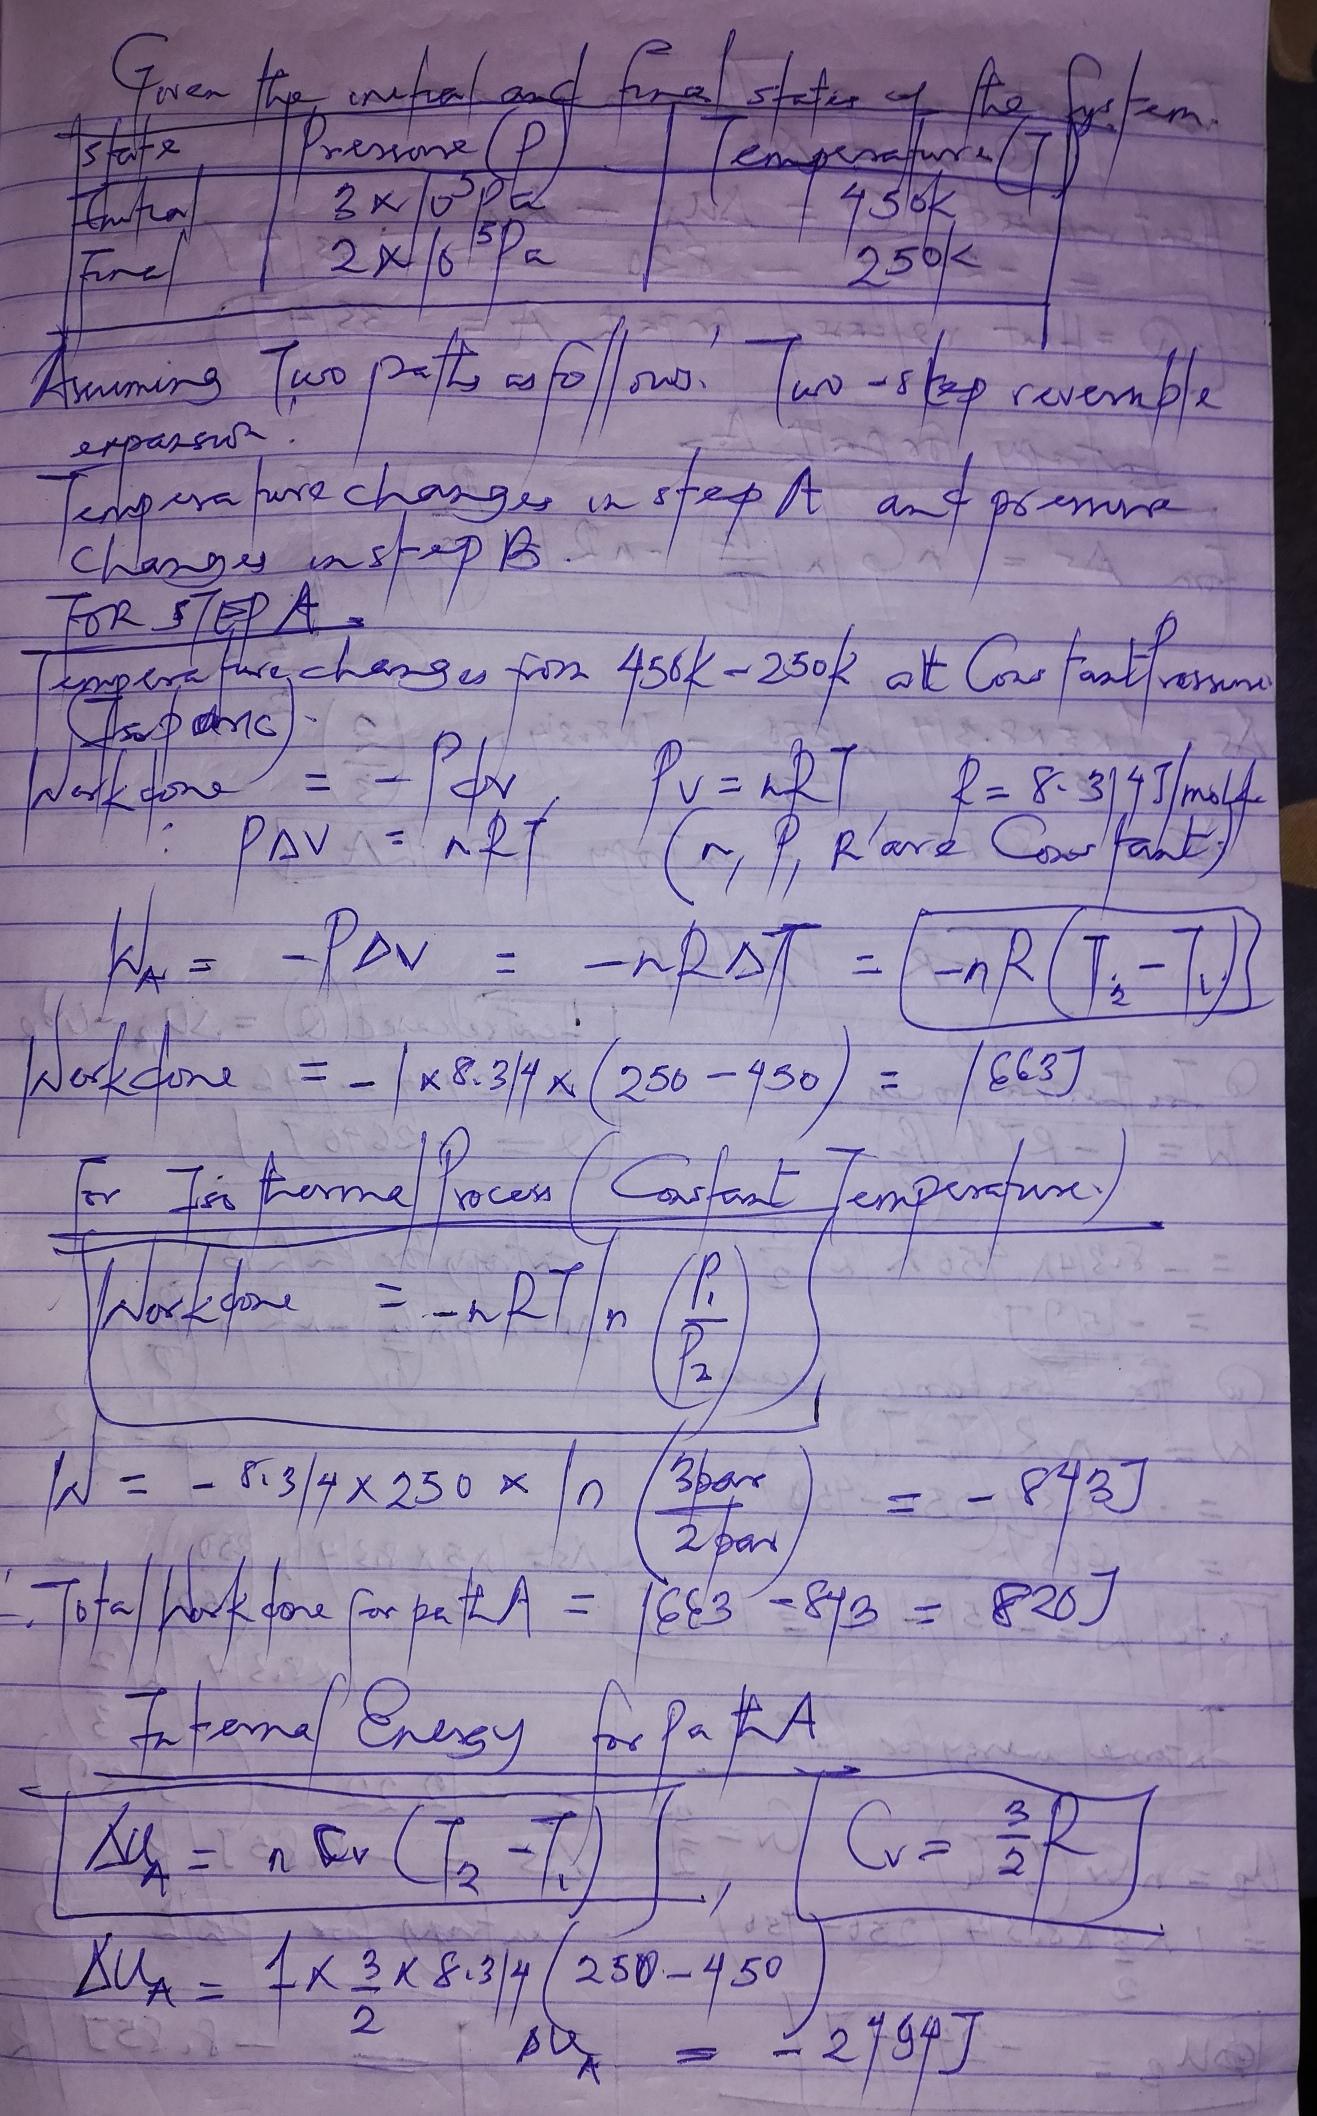 Given the initial and final states of the system.
State Pressure (P) Temperature (T)
Initial 3 x 10^5 Pa 450K
Final 2 x 10^5 Pa 250K
Assuming Two paths as follows: Two-step reversible
expansion.
Temperature changes in step A and pressure
changes in step B.
FOR STEP A
Temperature changes from 450K - 250K at Constant Pressure
(Isobaric).
Workdone = - Pdv, Pv = nRT R = 8.314J/molK
∴ PΔV = nRT (n, P, R are Constant)
W_A = -PΔV = -nRΔT = -nR(T₂ - T₁)
Workdone = - 1 x 8.314 x (250 - 450) = 1663J
For Isothermal Process (Constant Temperature.)
Workdone = -nRT ln (P₁/P₂)
W = - 8.314 x 250 x ln (3bar/2bar) = - 843J
∴ Total Workdone for path A = 1663 - 843 = 820J
Internal Energy for Path A
ΔU_A = n Cv (T₂ - T₁), Cv = 3/2 R
ΔU_A = 1 x 3/2 x 8.314 (250 - 450)
ΔU_A = - 2494J